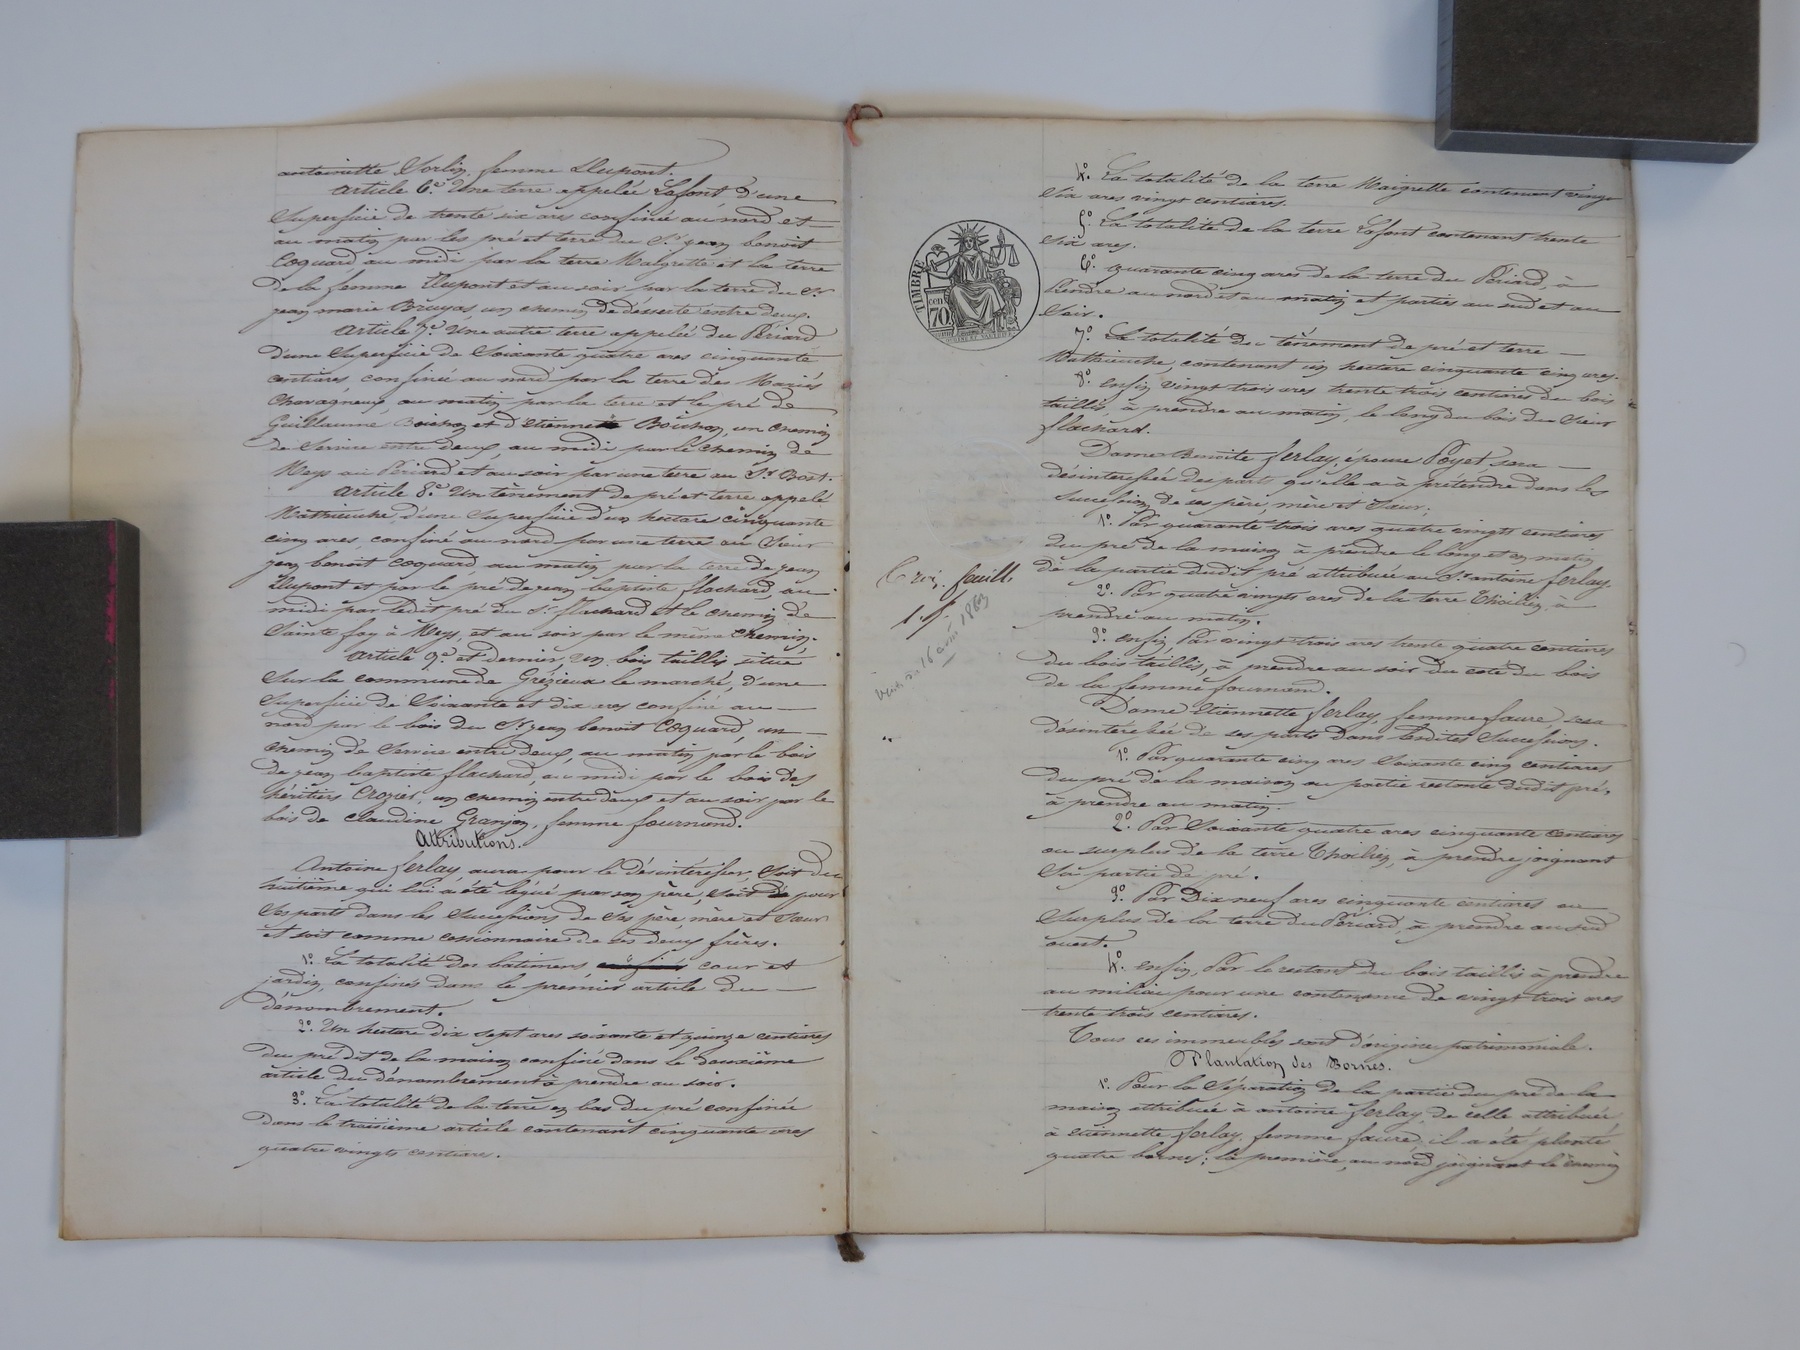 antoinette Sorlin, femme Dupont.
Article 6.e Une terre appelée Lafont d'une
Superficie de trente six ares confinée au nord et
au matin par les pré et terre du Sr jean benoit
Coquard, au midi par la terre Maigrette et la terre
de la femme Dupont et au soir par la terre du Sr
jean marie Bruyas, un chemin de desserte entre deux.
Article 7.e Une autre terre appelée du Périard
d'une Superficie de Soixante quatre ares cinquante
centiares, confinée au nord par la terre des Mariés
Chavagneux, au matin par la terre et le pré de
Guillaume Boichon et d'Etienne Boichon, un chemin
de Service entre deux, au midi par le chemin de
Meys au Périard et au soir par une terre au Sr Bost.
Article 8.e Un tènement de pré et terre appelé
Mathieuche, d'une Superficie d'un hectare cinquante
cinq ares, confiné au nord par une terre au Sieur
jean benoit Coquard au matin par la terre de jean
Dupont et par le pré de jean baptiste flachard, au
midi par ledit pré du Sr flachard et le chemin de
Sainte foy à Meys, et au soir par le même chemin.
Article 9.e et dernier, un bois taillis situé
Sur la commune de Grézieux le marché, d'une
Superficie de Soixante et dix ares confiné au
nord par le bois du Sr jean benoit Coquard, un
chemin de Service entre deux, au matin par le bois
de jean baptiste flachard, au midi par le bois des
héritiers Crozier, un chemin entre deux et au soir par le
bois de claudine Granjon, femme fournand.
Attributions.
Antoine ferlay aura pour le désintéresser, Soit du
huitième qui lui a été légué par son père, Soit de pour
Ses parts dans les Successions de Ses père, mère et Sœur
et soit comme cessionnaire de ses deux frères.
1.o La totalité des batimens cour et
jardin, confinés dans le premier article du
dénombrement.
2.o Un hectare dix sept ares soixante et quinze centiares
du pré dit de la maison confiné dans le deuxième
article du dénombrement à prendre au soir.
3.o La totalité de la terre en bas du pré confinée
dans le troisième article contenant cinquante ares
quatre vingts centiares.
4.o La totalité de la terre Maigrette contenant vingt
Six ares vingt centiares.
5.o La totalité de la terre Lafont contenant trente
Six ares.
6.o quarante cinq ares de la terre du Périard, à
prendre au nord et au matin et parties au sud et au
Soir.
7.o La totalité du tènement de pré et terre
Mathieuche, contenant un hectare cinquante cinq ares.
8.o enfin vingt trois ares trente trois centiares du bois
taillis, à prendre au matin, le long du bois du Sieur
flachard.
TIMBRE
cen
70
Dame Benoite ferlay, épouse Poyet sera
désintéressée des parts qu'elle a à prétendre dans les
Successions de ses père, mère et Sœur;
1.o Par quarante trois ares quatre vingts centiares
du pré de la maison à prendre le long et en matin
de la partie dudit pré attribuée au Sr antoine ferlay.
2.o Par quatre vingts ares de la terre Choilien, à
prendre au matin.
3.o enfin, Par vingt trois ares trente quatre centiares
du bois taillis, à prendre au soir du coté du bois
de la femme fournand.
feuille
16 août 1863
Dame Etiennette ferlay, femme faure, sera
désintéressée de ses parts dans lesdites Successions.
1.o Par quarante cinq ares Soixante cinq centiares
du pré de la maison ou partie restante dudit pré,
à prendre au matin.
2.o Par Soixante quatre ares cinquante centiares
ou surplus de la terre Choilien, à prendre joignant
Sa partie de pré.
3.o Par Dix neuf ares cinquante centiares ou
Surplus de la terre du Périard, à prendre au sud
ouest.
4.o enfin, Par le restant du bois taillis à prendre
au milieu pour une contenance de vingt trois ares
trente trois centiares.
Tous ces immeubles sont d'origine patrimoniale.
Plantation des Bornes.
1.o Pour la Séparation de la partie du pré de la
maison attribuée à antoine ferlay, de celle attribuée
à etiennette ferlay, femme faure, il a été planté
quatre bornes; la première, au nord joignant le chemin